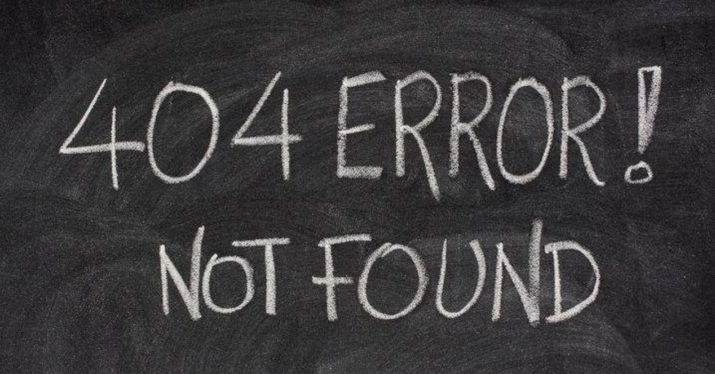 404 ERROR!
NOT FOUND